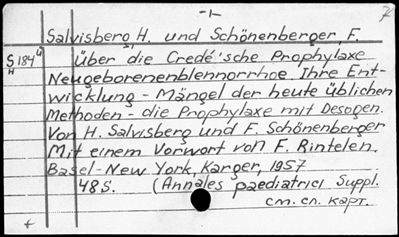 -1-
Salvisberg, H. und Schönenberger, F.
S 184 4 Über die Credé'sche Prophylaxe
H Neugeborenenblennorrhoe. Ihre Ent-
wicklung - Mängel der heute üblichen
Methoden - die Prophylaxe mit Desogen.
Von H. Salvisberg und F. Schönenberger
Mit einem Vorwort von F. Rintelen.
Basel-New York, Karger, 1957
48S. (Annales paediatrici Suppl.
см. сл. карт.
+